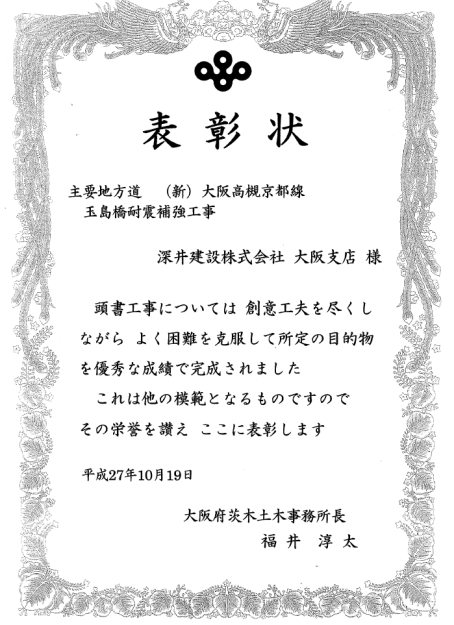 表彰状
主要地方道 （新）大阪高槻京都線
玉島橋耐震補強工事
深井建設株式会社 大阪支店 様
頭書工事については 創意工夫を尽くし
ながら よく困難を克服して所定の目的物
を優秀な成績で完成されました
これは他の模範となるものですので
その栄誉を讃え ここに表彰します
平成27年10月19日
大阪府茨木土木事務所長
福井 淳太